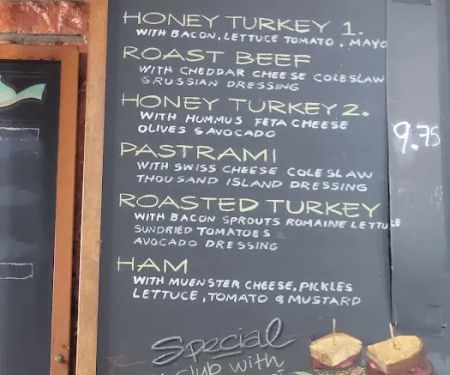 HONEY TURKEY 1.
WITH BACON, LETTUCE TOMATO, MAYO
ROAST BEEF
WITH CHEDDAR CHEESE COLESLAW
&RUSSIAN DRESSING
HONEY TURKEY 2.
WITH HUMMUS FETA CHEESE
OLIVES &AVOCADO
9.75
PASTRAMI
WITH SWISS CHEESE COLESLAW
THOUSAND ISLAND DRESSING
ROASTED TURKEY
WITH BACON SPROUTS ROMAINE LETTUCE
SUNDRIED TOMATOES
AVOCADO DRESSING
HAM
WITH MUENSTER CHEESE, PICKLES
LETTUCE, TOMATO & MUSTARD
Special
club with